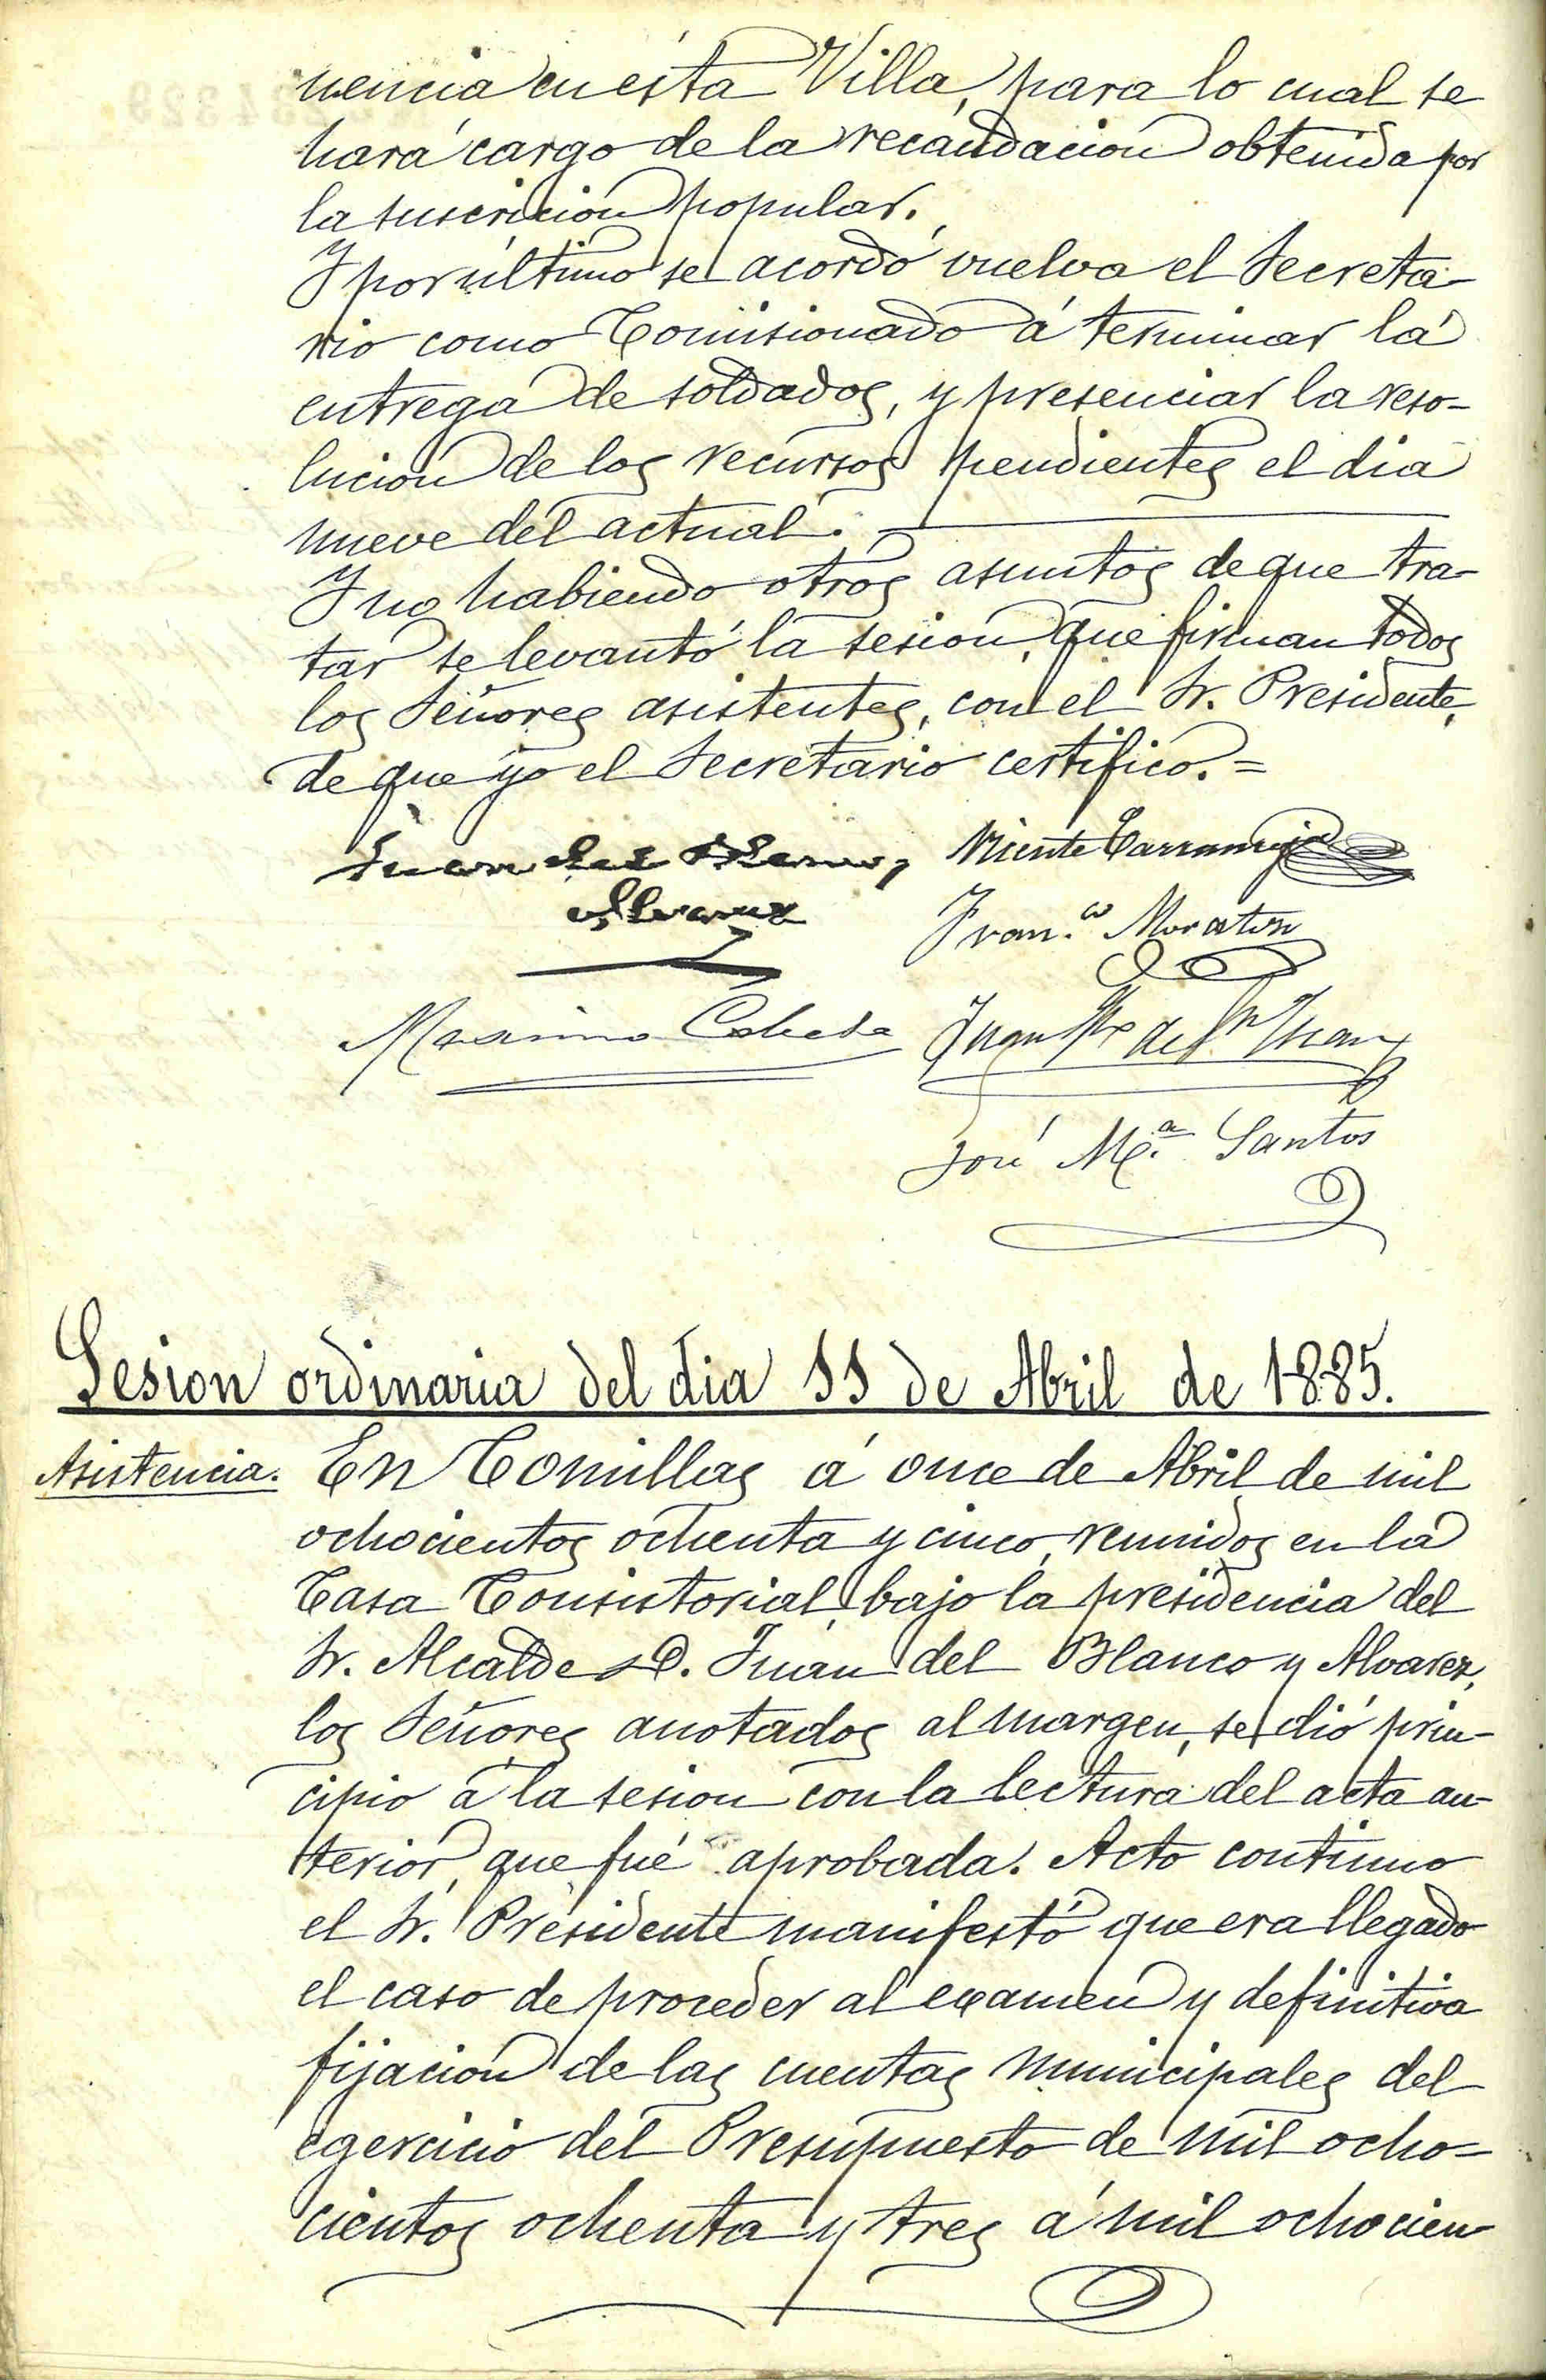 nencia en ésta Villa, para lo cual se
hará cargo de la recaudacion obtenida por
la suscricion popular.
Y por último se acordó vuelva el Secreta-
rio como Comisionado á terminar la
entrega de soldados, y presenciar la reso-
lucion de los recursos pendientes el dia
nueve del actual.
Y no habiendo otros asuntos de que tra-
tar se levantó la sesion, que firman todos
los Señores asistentes, con el Sr. Presidente,
de que yo el Secretario certifico.=
Juan del Blanco y Vicente
Alvarez
Fran.co Moraton
Maximo Cabeda Juan
José M.a Santos
Sesion ordinaria del dia 11 de Abril de 1885.
Asistencia. En Comillas á once de Abril de mil
ochocientos ochenta y cinco, reunidos en la
Casa Consistorial, bajo la presidencia del
Sr. Alcalde D. Juan del Blanco y Alvarez,
los Señores anotados al margen, se dió prin-
cipio á la sesion con la lectura del acta an-
terior, que fué aprobada. Acto continuo
el Sr. Presidente manifestó que era llegado
el caso de proceder al examen y definitiva
fijacion de las cuentas municipales del
egercicio del Presupuesto de mil ocho-
cientos ochenta y tres á mil ochocien-